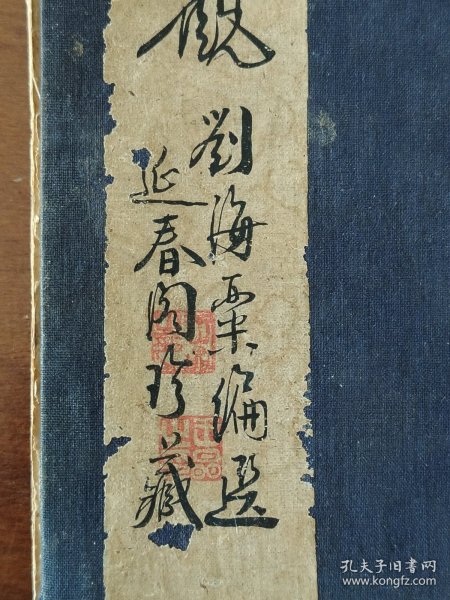 劉海粟編選
延春閣珍藏
孔夫子旧书网
www.kongfz.com